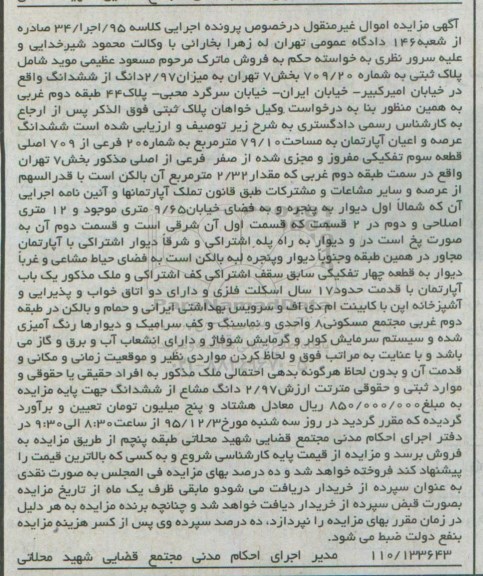 آگهی مزایده اموال غیرمنقول درخصوص پرونده اجرایی کلاسه ۳۴/اجرا/۹۵ صادره
از شعبه۱۴۶ دادگاه عمومی تهران له زهرا بخارانی با وکالت محمود شیرخدایی و
علیه سرور نظری به خواسته حکم به فروش ماترک مرحوم مسعود عظیمی موید شامل
پلاک ثبتی به شماره ۷۰۹/۲۰ بخش۷ تهران به میزان۲/۹۷دانگ از ششدانگ واقع
در خیابان امیرکبیر– خیابان ایران– خیابان سرگرد محبی– پلاک۴۴ طبقه دوم غربی
به همین منظور بنا به درخواست وکیل خواهان پلاک ثبتی فوق الذکر پس از ارجاع
به کارشناس رسمی دادگستری به شرح زیر توصیف و ارزیابی شده است ششدانگ
عرصه و اعیان آپارتمان به مساحت۷۹/۱۰ مترمربع به شماره۲۰ فرعی از ۷۰۹ اصلی
قطعه سوم تفکیکی مفروز و مجزی شده از صفر فرعی از اصلی مذکور بخش۷ تهران
واقع در سمت طبقه دوم غربی که مقدار۲/۳۲ مترمربع آن بالکن است با قدرالسهم
از عرصه و سایر مشاعات و مشترکات طبق قانون تملک آپارتمانها و آئین نامه اجرایی
آن که شمالاً اول دیوار به پنجره و به فضای خیابان۹/۶۵ متری موجود و ۱۲ متری
اصلاحی و دوم در ۲ قسمت که قسمت اول آن شرقی است و قسمت دوم آن به
صورت پخ است در و دیوار به راه پله اشتراکی و شرقاً دیوار اشتراکی با آپارتمان
مجاور در همین طبقه وجنوباً دیوار وپنجره لبه بالکن است به فضای حیاط مشاعی و غرباً
دیوار به قطعه چهار تفکیکی سابق سقف اشتراکی کف اشتراکی و ملک مذکور یک باب
آپارتمان با قدمت حدود۱۷ سال اسکلت فلزی و دارای دو اتاق خواب و پذیرایی و
آشپزخانه اپن با کابینت ام دی اف و سرویس بهداشتی ایرانی و حمام و بالکن در طبقه
دوم غربی مجتمع مسکونی۸ واحدی و نماسنگ و کف سرامیک و دیوارها رنگ آمیزی
شده و سیستم سرمایش کولر و گرمایش شوفاژ و دارای انشعاب آب و برق و گاز می
باشد و با عنایت به مراتب فوق و لحاظ کردن مواردی نظیر و موقعیت زمانی و مکانی و
قدمت آن و بدون لحاظ هرگونه بدهی احتمالی ملک مذکور به افراد حقیقی یا حقوقی و
موارد ثبتی و حقوقی مترتت ارزش۲/۹۷ دانگ مشاع از ششدانگ جهت پایه مزایده
به مبلغ۸۵۰/۰۰۰/۰۰۰ ریال معادل هشتاد و پنج میلیون تومان تعیین و برآورد
گردیده که مقرر گردید در روز سه شنبه مورخ۹۵/۱۲/۳ از ساعت۸:۳۰ الی۹:۳۰ در
دفتر اجرای احکام مدنی مجتمع قضایی شهید محلاتی طبقه پنجم از طریق مزایده به
فروش برسد و مزایده از قیمت پایه کارشناسی شروع و به کسی که بالاترین قیمت را
پیشنهاد کند فروخته خواهد شد و ده درصد بهای مزایده فی المجلس به صورت نقدی
به عنوان سپرده از خریدار دریافت می شودو مابقی ظرف یک ماه از تاریخ مزایده
بصورت قبض سپرده از خریدار دیافت خواهد شد و چنانچه برنده مزایده به هر دلیل
در زمان مقرر بهای مزایده را نپردازد، ده درصد سپرده وی پس از کسر هزینه مزایده
بنفع دولت ضبط می شود.
۱۱۰/۱۳۳۶۴۳ مدیر اجرای احکام مدنی مجتمع قضایی شهید محلاتی